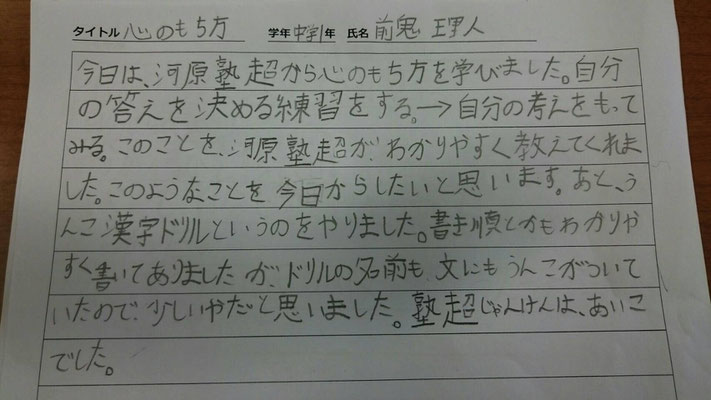 タイトル 心のもち方 学年 中学1年 氏名 前鬼 理人
今日は、河原塾超から心のもち方を学びました。自分
の答えを決める練習をする。→自分の考えをもって
みる。このことを、河原塾超が、わかりやすく教えてくれま
した。このようなことを今日からしたいと思います。あと、う
んこ漢字ドリルというのをやりました。書き順とかもわかりや
すく書いてありましたが、ドリルの名前も、文にもうんこがついて
いたので、少しいやだと思いました。塾超じゃんけんは、あいこ
でした。